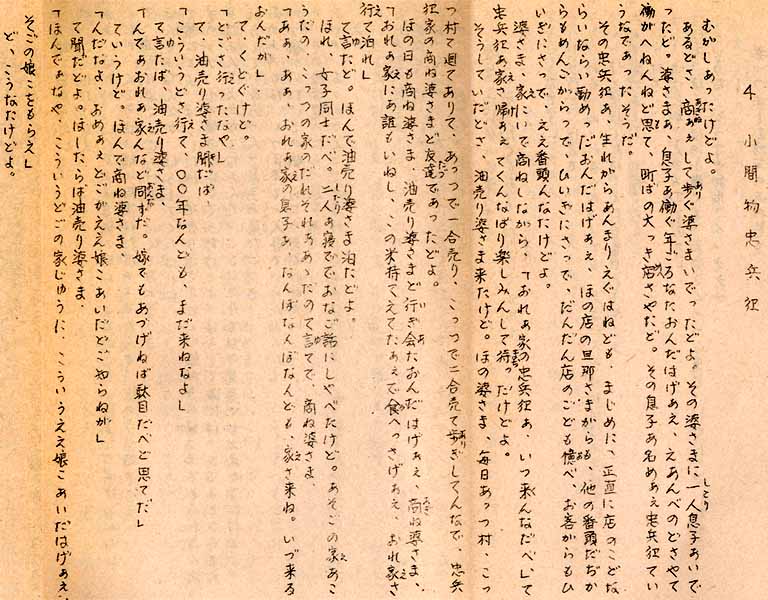 4 小間物忠兵衛
むがしあったけどよ。
あるどさ、商ぁぇして歩ぐ婆さまいでったどよ。その婆さまに一人息子あいで
ったど。婆さまぁ、息子ぁ働ぐ年ごろなたおんだはげぁぇ、えあんべのどさやて
働がへねんねど思て、町ばの大っき店さやたど。その息子ぁ名めぁぇ忠兵衛てい
うなであったそうだ。
その忠兵衛ぁ、生れがらあんまりえぐはねども、まじめに、正直に店のこどな
らいならい勤めっだおんだはげぁぇ、ほの店の旦那さまがらも、他の番頭だぢが
らもめんごがらっで、ひいぎにさっで、だんだん店のごども憶べ、お客がらもひ
いぎにさっで、ええ番頭んなたけどよ。
婆さま、家こいで商ねしながら、「おれぁ家の忠兵衛ぁ、いつ来んなだべ」て
忠兵衛ぁ家さ帰ぁぇてくんなばり楽しみんして待ったけどよ。
そうしていだどさ、油売り婆さま来たけど。ほの婆さま、毎日あっつ村、こっ
つ村て廻てありて、あっつで一合売り、こっつで二合売て歩ぎしてんなで、忠兵
衛家の商ね婆さまど友達であったどよ。
ほの日も商ね婆さま、油売り婆さまど行ぎ会たおんだはげぁぇ、商ね婆さま、
「おれぁ家にあ誰もいねし、この米持てえてたぁぇで食へっさげぁぇ、おれぁ家さ
行て泊れ」
て言たど。ほんで油売り婆さま泊たどよ。
ほれ、女子同士だべ。二人ぁ寝ででおなご話にしゃべたけど。あそごの家あこ
うだの、こっつの家のだれそれああったのて言てで、商ね婆さま、
「あぁ、あぁ、おれぁ家の息子あ、なんぼなんぼなんども、家さ来ね。いづ来る
おんだが」
て、くどぐけど。
「どごさ行ったなや」
て、油売り婆さま聞だば
「こういうどさ行て、〇〇年なんども、まだ来ねなよ」
て言たば、油売り婆さま、
「んであおれぁ家んなど同ずだ。嫁でもあづげねば駄目だべど思てだ」
ていうけど。ほんで商ね婆さま、
「んだなよ、おめぁぇどごがええ娘こあいだどご知らねが」
て聞だどよ。ほしたらば油売り婆さま、
「ほんであなや、こういうどごの家じゅうに、こういうええ娘こあいだはげぁぇ、
そごの娘こをもらえ」
ど、こうなたけどよ。